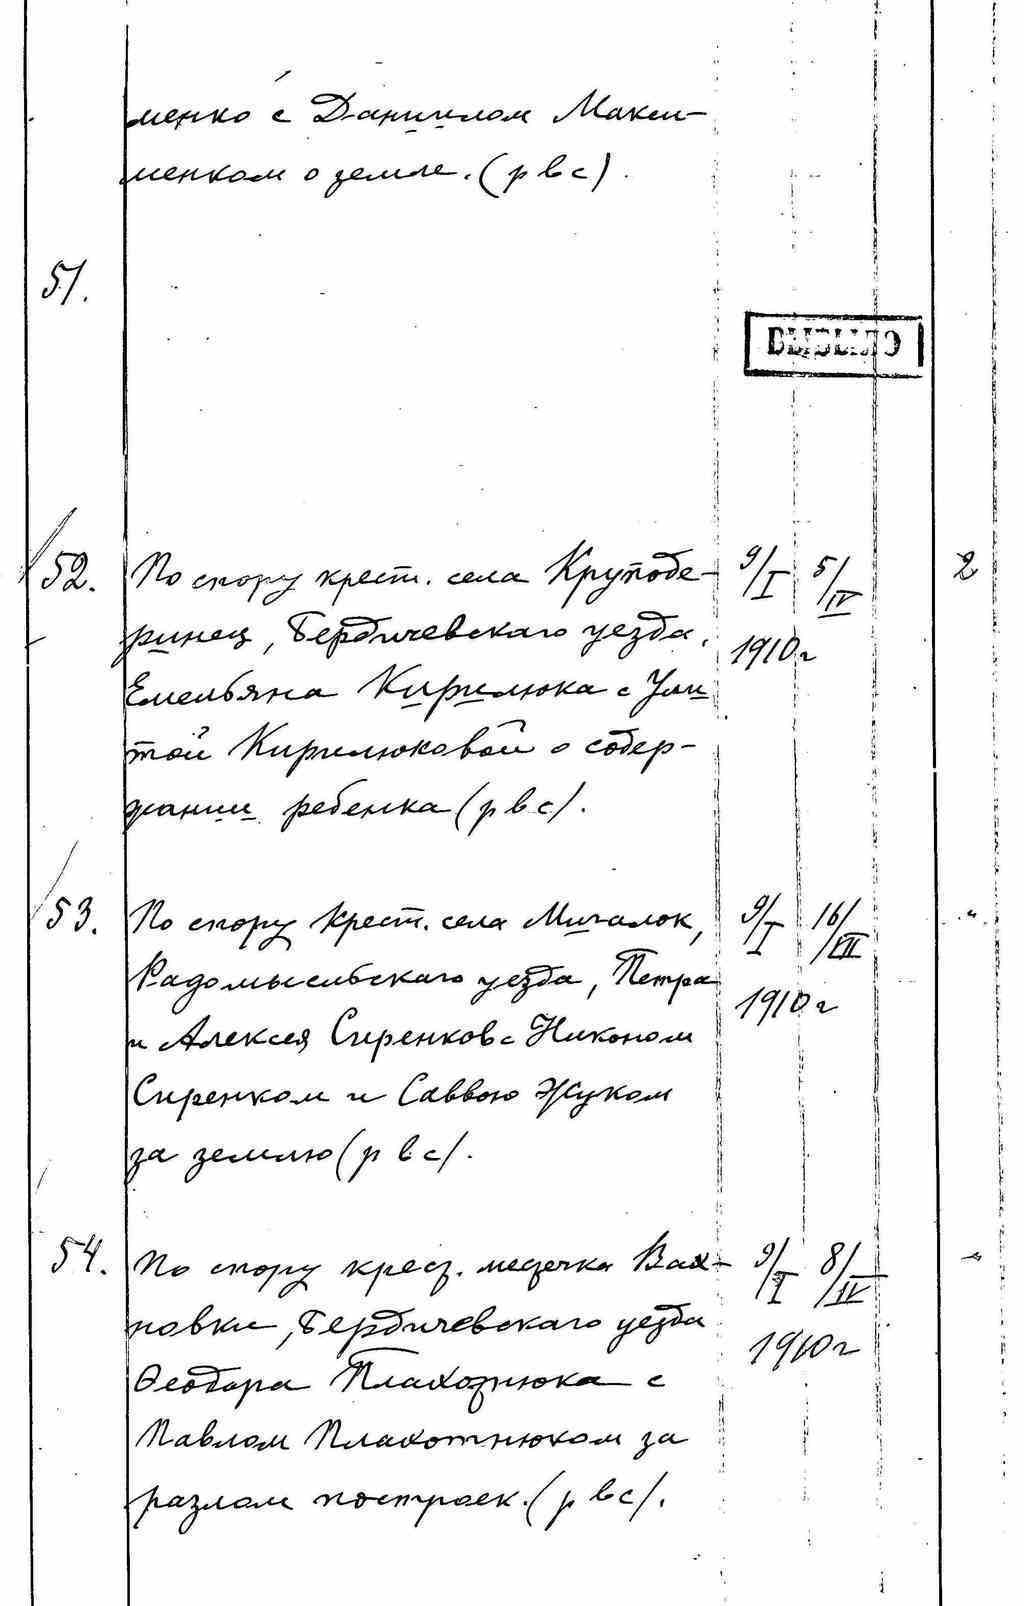 менко с Даниилом Макси-
менком о земле. (р в с).
51.
ВЫБЫЛО
52. По спору крест. села Крутобе- 9/I 5/IV 2
ринец, Бердичевскаго уезда, 1910 г
Емельяна Кирилюка с Ули
той Кирилюковой о содер-
жании ребенка (р в с).
53. По спору крест. села Мигалок, 9/I 16/VII "
Радомысльскаго уезда, Петра 1910 г
и Алексея Сиренков с Никоном
Сиренком и Саввою Жуком
за землю (р в с).
54. По спору крест. местечка Вах- 9/I 8/IV "
новки, Бердичевскаго уезда 1910 г
Феодора Плахотнюка с
Павлом Плахотнюком за
разлом построек. (р в с).